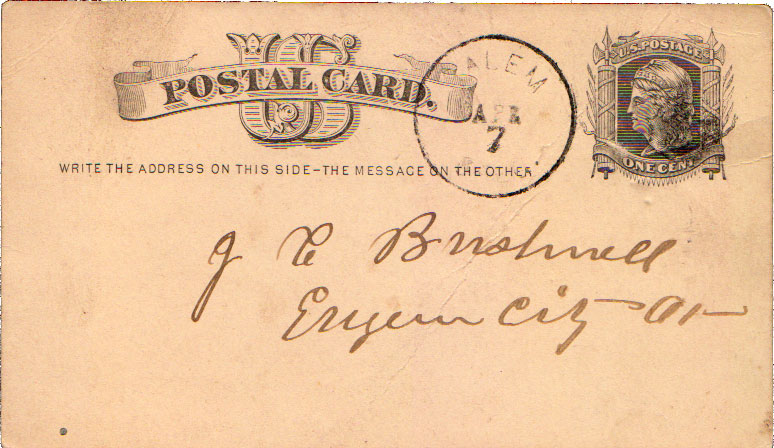 US
POSTAL CARD.
U.S. POSTAGE
ONE CENT
SALEM
APR
7
WRITE THE ADDRESS ON THIS SIDE–THE MESSAGE ON THE OTHER
J Bushnell
Eugene City Or